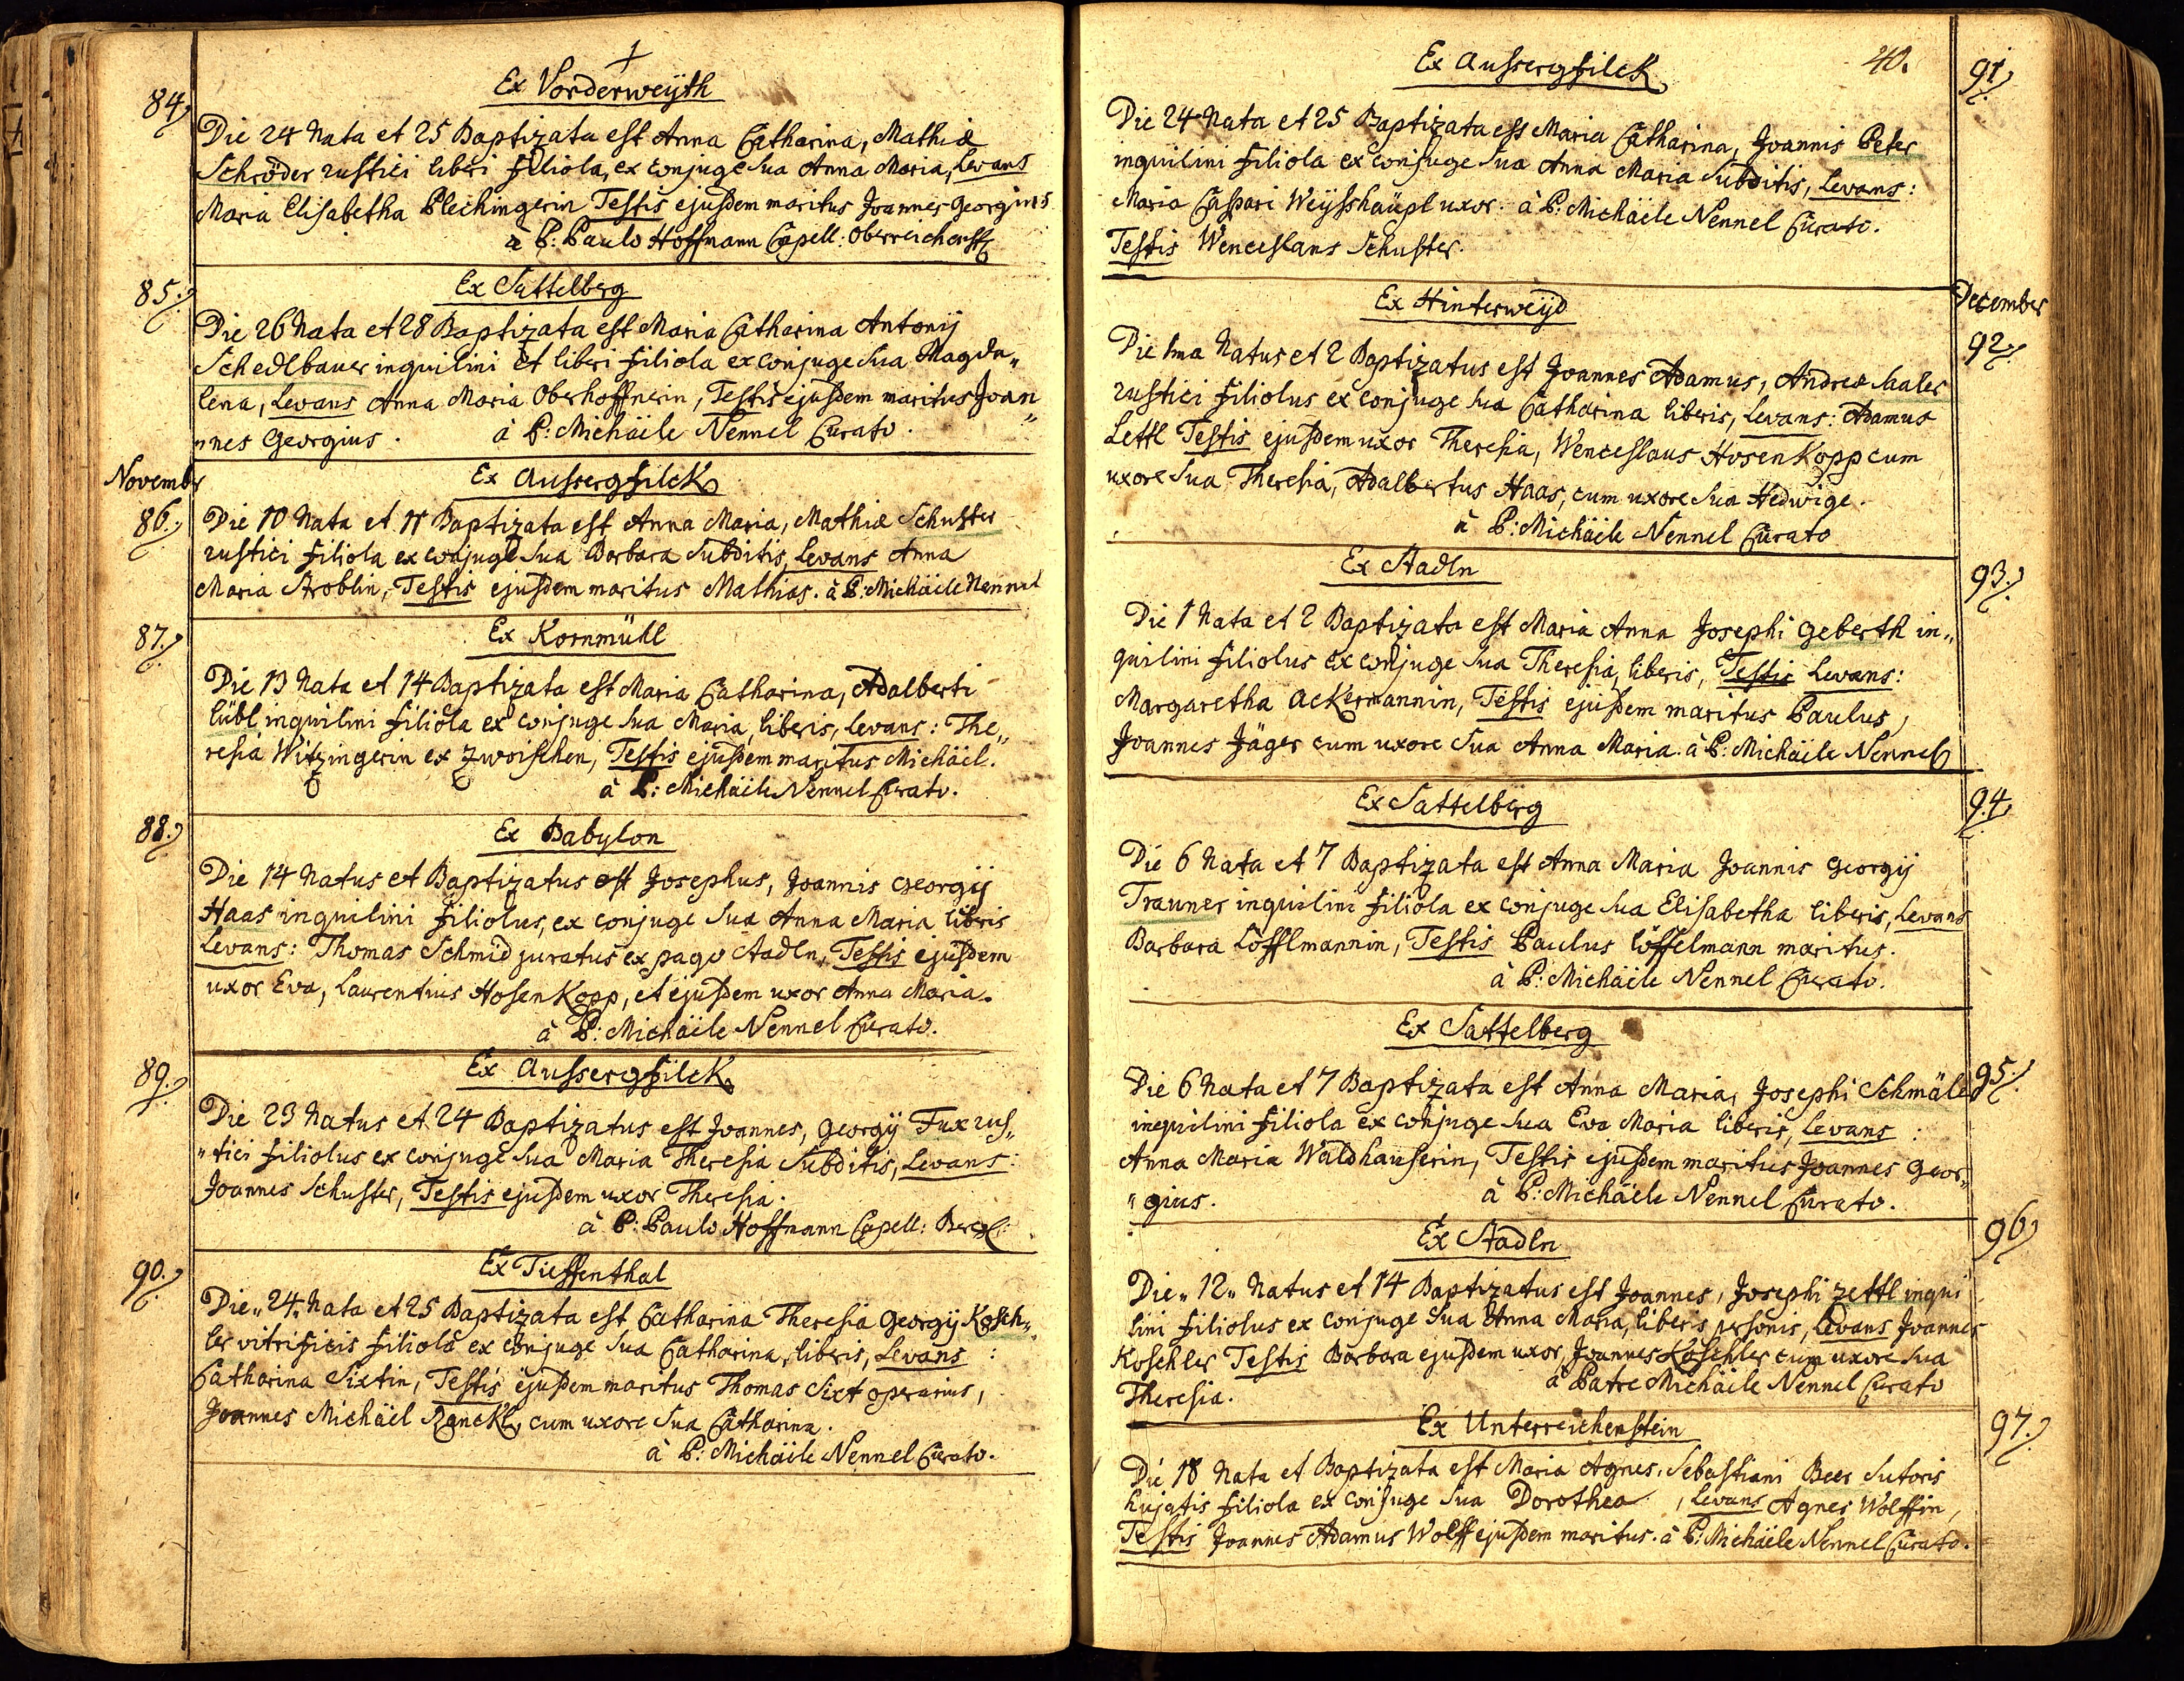 Ex Vorderweÿth
84.
Die 24 Nata et 25 Baptizata est Anna Catharina, Mathiæ
Schröder rustici liberi filiola, ex conjuge sua Anna Maria, Levans
Maria Elisabetha Plechingerin Testis ejusdem maritus Joannes Georgius
à P: Paulo Hoffmann Capell:
Ex Sattelberg
85.
Die 26 Nata et 28 Baptizata est Maria Catharina Antonij
Schedlbauer inquilini et liberi filiola ex conjuge sua Magda„
lena, Levans Anna Maria Oberhoffnerin, Testis ejusdem maritus Joan„
„nes Georgius. à P: Michäele Nennel Curato.
Novembr
Ex Aussergfilck
86.
Die 10 Nata et 11 Baptizata est Anna Maria, Mathiæ Schuster
rustici filiola ex conjuge sua Barbara Subditis, Levans Anna
Maria Stroblin, Testis ejusdem maritus Mathias. à P: Michäele Nennel
Ex Kornmüll
87.
Die 13 Nata et 14 Baptizata est Maria Catharina, Adalberti
lübl inquilini filiola ex conjuge sua Maria, liberis, Levans: The„
resia Witzingerin ex Zwoischen, Testis ejusdem maritus Michäel.
à P: Michäele Nennel Curato.
Ex Babylon
88.
Die 14 Natus et Baptizatus est Josephus, Joannis Georgij
Haas inquilini filiolus, ex conjuge sua Anna Maria libris
Levans: Thomas Schmid juratus ex pago Stadln, Testis ejusdem
uxor Eva, Laurentius Hosenkopp, et ejusdem uxor Anna Maria.
à P: Michäele Nennel Curato.
Ex Aussergfilck
89.
Die 23 Natus et 24 Baptizatus est Joannes, Georgij Fux rus„
„tici filiolus ex conjuge sua Maria Theresia Subditis, Levans:
Joannes Schuster, Testis ejusdem uxor Theresia.
à P: Paulo Hoffmann Capell:
Ex Tieffenthal
90.
Die „24. Nata et 25 Baptizata est Catharina Theresia Georgij Kosch„
ler vitrificis filiola ex conjuge sua Catharina, liberis, Levans:
Catharina Sixtin, Testis ejusdem maritus Thomas Sixt operarius,
Joannes Michäel Ranckl, cum uxore sua Catharina.
à P: Michäele Nennel Curato.
40.
Ex Aussergfilck
91.
Die 24 Nata et 25 Baptizata est Maria Catharina, Joannis Peter
inquilini filiola ex conjuge sua Anna Maria Subditis, Levans:
Maria Caspari Weÿsshäupl uxor. à P: Michäele Nennel Curato.
Testis Wenceslaus Schuster.
December
Ex Hinterweÿd
92.
Die 1ma Natus et 2 Baptizatus est Joannes Adamus, Andreæ
rustici filiolus ex conjuge sua Catharina liberis, Levans: Adamus
Lettl Testis ejusdem uxor Theresia, Wenceslaus Hosenkopp cum
uxore sua Theresia, Adalbertus Haas, cum uxore sua Hedwige.
à P: Michäele Nennel Curato
Ex Stadln
93.
Die 1 Nata et 2 Baptizata est Maria Anna Josephi Geberth in„
quilini filiolus ex conjuge sua Theresia, liberis, Testis Levans:
Margaretha Ackermannin, Testis ejusdem maritus Paulus,
Joannes Jäger cum uxore sua Anna Maria. à P: Michäele Nennel
Ex Sattelberg
94.
Die 6 Nata et 7 Baptizata est Anna Maria Joannis Georgij
Trauner inquilini filiola ex conjuge sua Elisabetha liberis, Levans
Barbara Löfflmannin, Testis Paulus Löffelmann maritus.
à P: Michäele Nennel Curato.
Ex Sattelberg
95.
Die 6 Nata et 7 Baptizata est Anna Maria, Josephi Schmäler
inquilini filiola ex conjuge sua Eva Maria liberis, Levans:
Anna Maria Waldhauserin, Testis ejusdem maritus Joannes Geor„
„gius. à P: Michäele Nennel Curato.
Ex Stadln
96.
Die „12„ Natus et 14 Baptizatus est Joannes, Josephi Zettl inqui
lini filiolus ex conjuge sua Anna Maria, liberis personis, Levans Joannes
Koschler Testis Barbara ejusdem uxor, Joannes Koschler cum uxore sua
Theresia. à Patre Michäele Nennel Curato
Ex Unterreichenstein
97.
Die 18 Nata et Baptizata est Maria Agnes, Sebastiani Beer Sutoris
hujatis filiola ex conjuge sua Dorothea, Levans Agnes Wolffin,
Testis Joannes Adamus Wolff ejusdem maritus. à P: Michäele Nennel Curato.